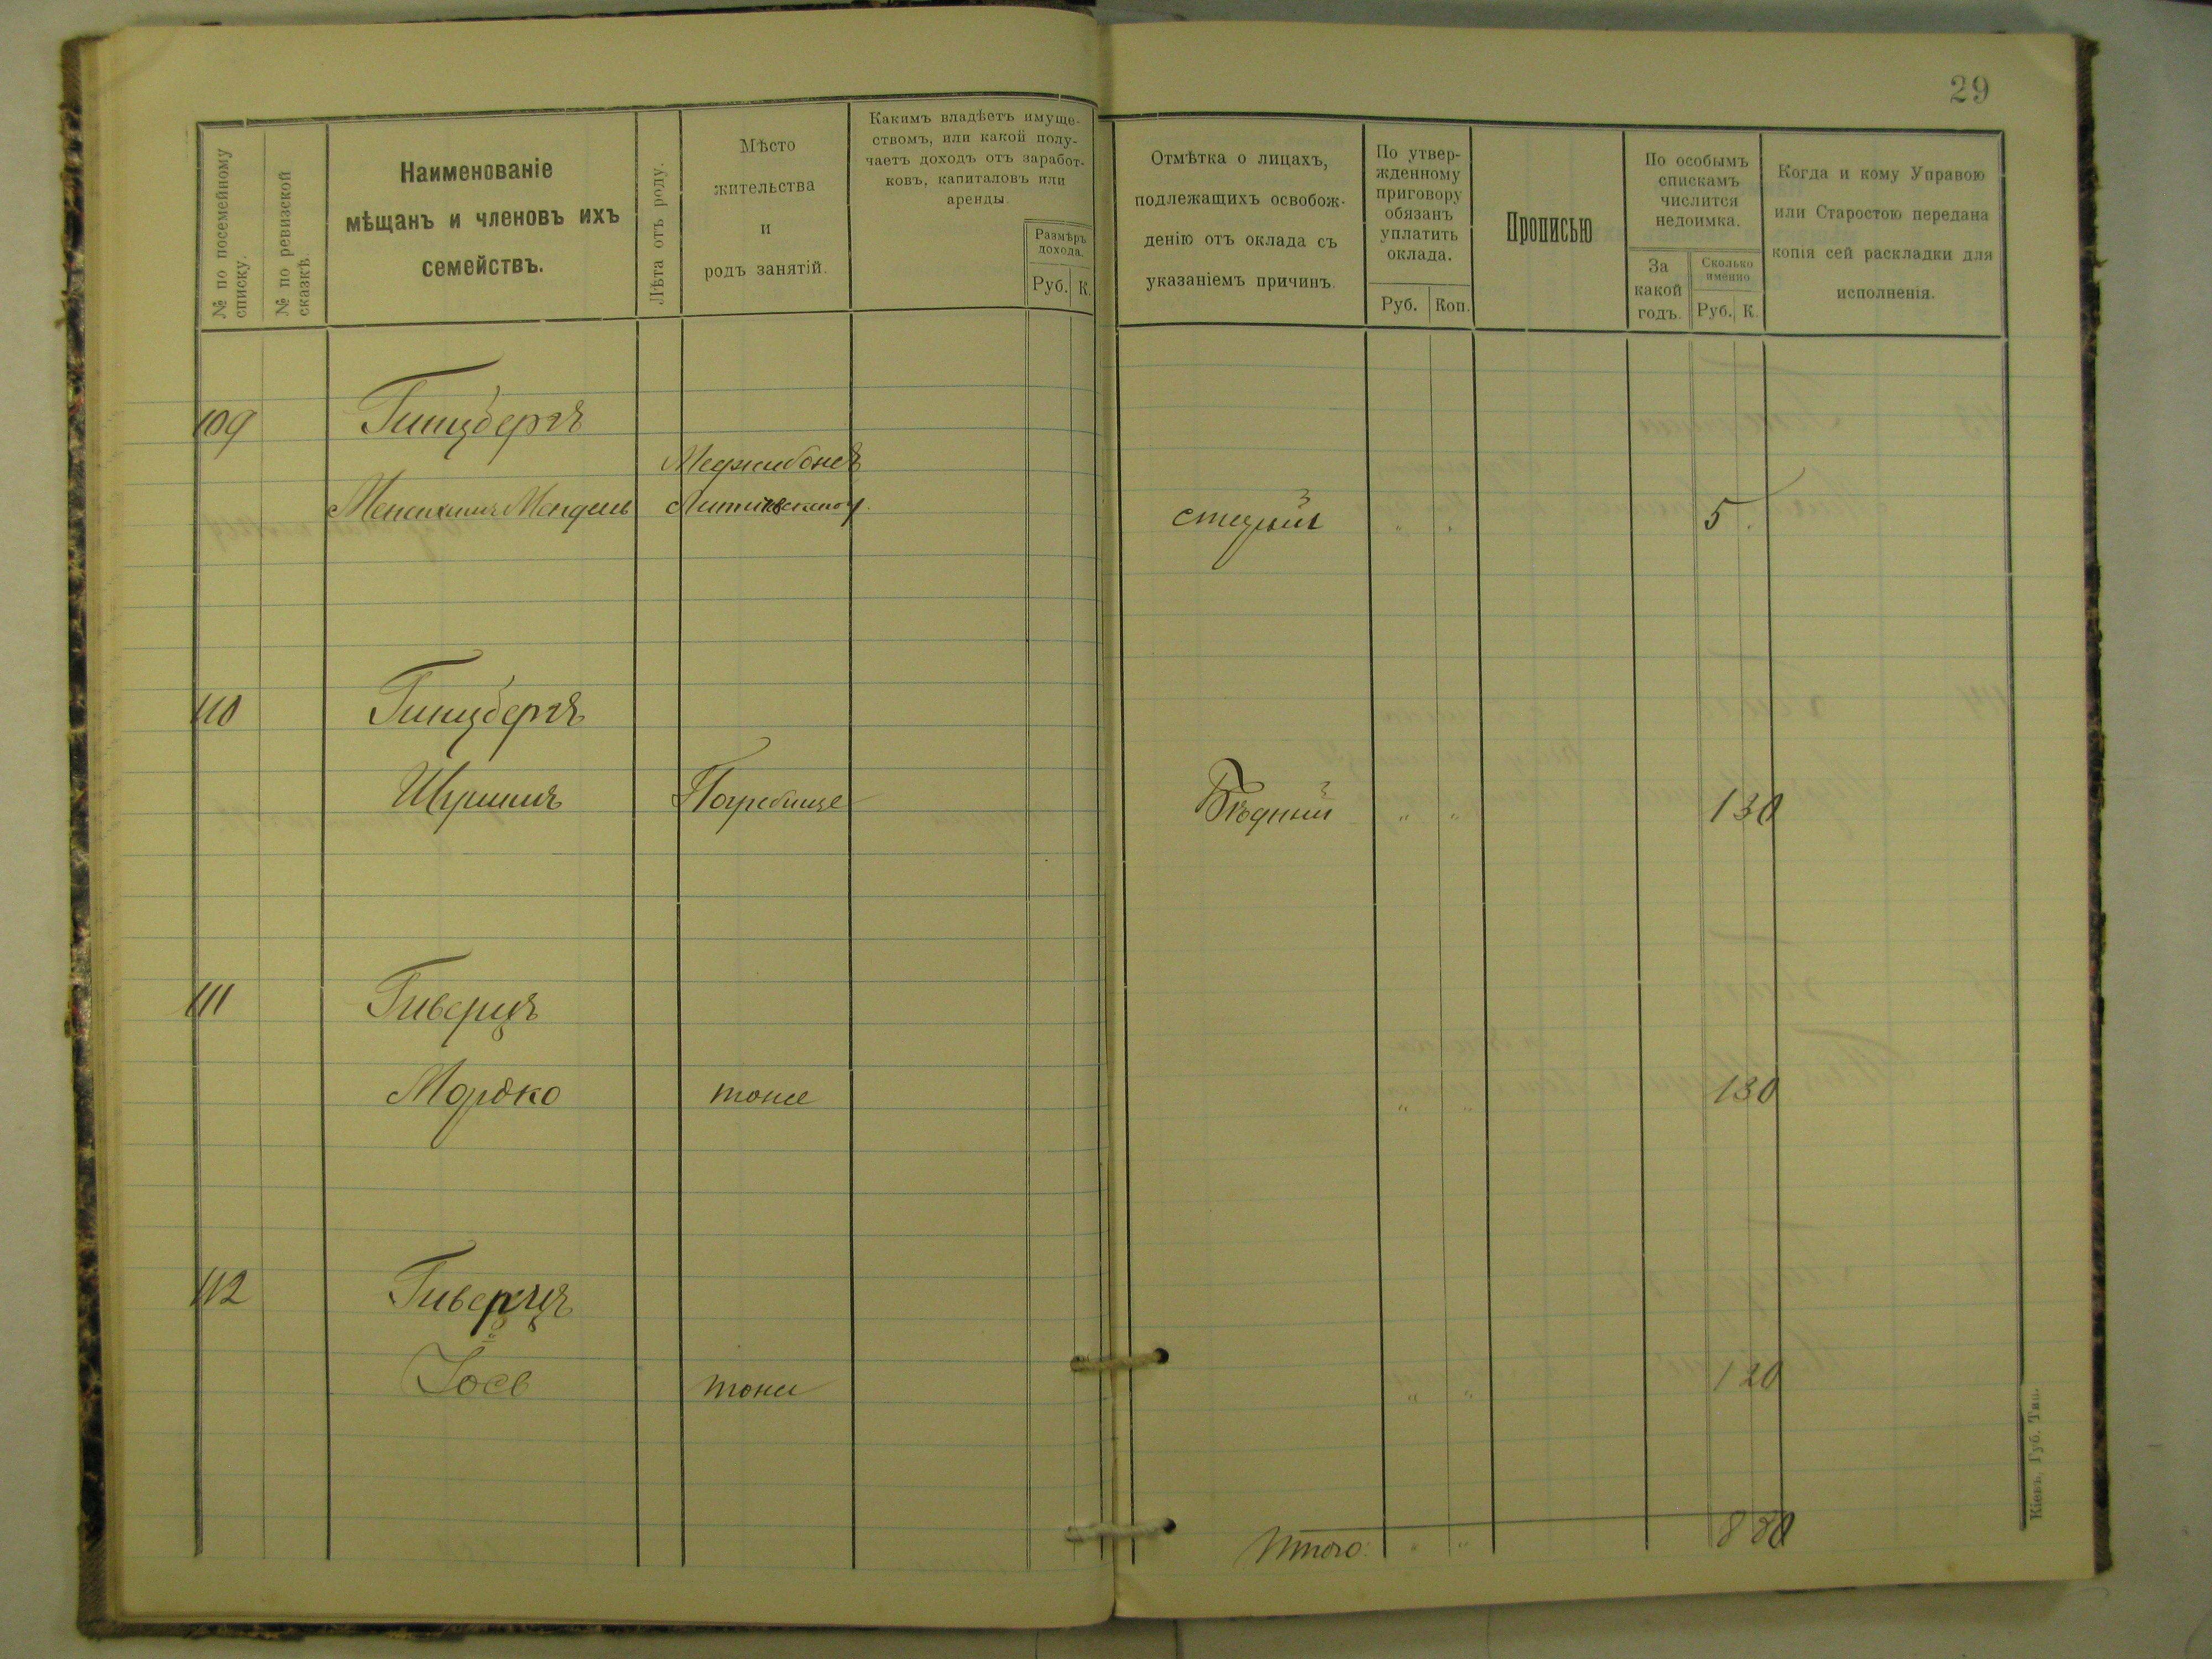 29
№ по посемейному списку.
№ по ревизской сказкѣ.
Наименованіе
мѣщанъ и членовъ ихъ
семействъ.
Лѣта отъ роду.
Мѣсто
жительства
и
родъ занятій.
Какимъ владѣетъ имуще-
ствомъ, или какой полу-
чаетъ доходъ отъ заработ-
ковъ, капиталовъ или
аренды.
Размѣръ
дохода.
Руб. К.
Отмѣтка о лицахъ,
подлежащихъ освобож-
денію отъ оклада съ
указаніемъ причинъ.
По утвер-
жденному
приговору
обязанъ
уплатить
оклада.
Руб. Коп.
Прописью
По особымъ
спискамъ
числится
недоимка.
За
какой
годъ.
Сколько
именно
Руб. К.
Когда и кому Управою
или Старостою передана
копія сей раскладки для
исполненія.
109 Гинцбергъ
Меджибожъ
Менахимъ Мендель Литинскаго у. " " 5
110 Гинцбергъ
Шулимъ Погребище Бѣдный " " 1 30
111 Гиверцъ
Мордко тоже " " 1 30
112 Гиверцъ
Іось тоже " " 1 20
Итого: " " 8 80
Кіевъ, Губ. Тип.